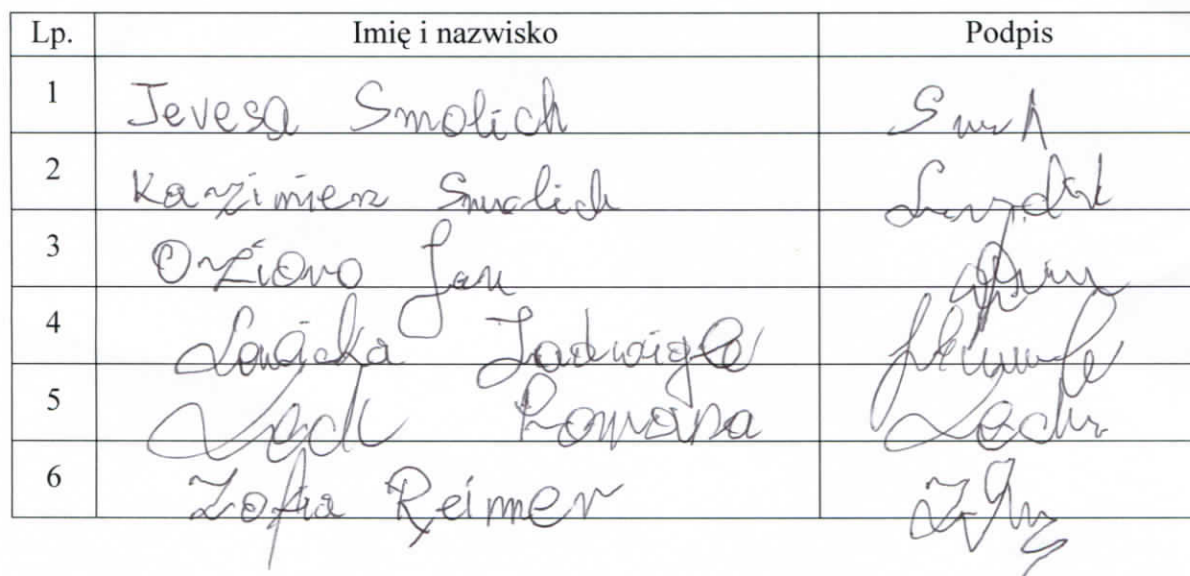 Lp. Imię i nazwisko Podpis
1 Teresa Smolich
2 Kazimierz Smolich
3 Orziovo Jan
4 Lewicka Jadwiga
5 Lech Romana Lech
6 Zofia Reimer